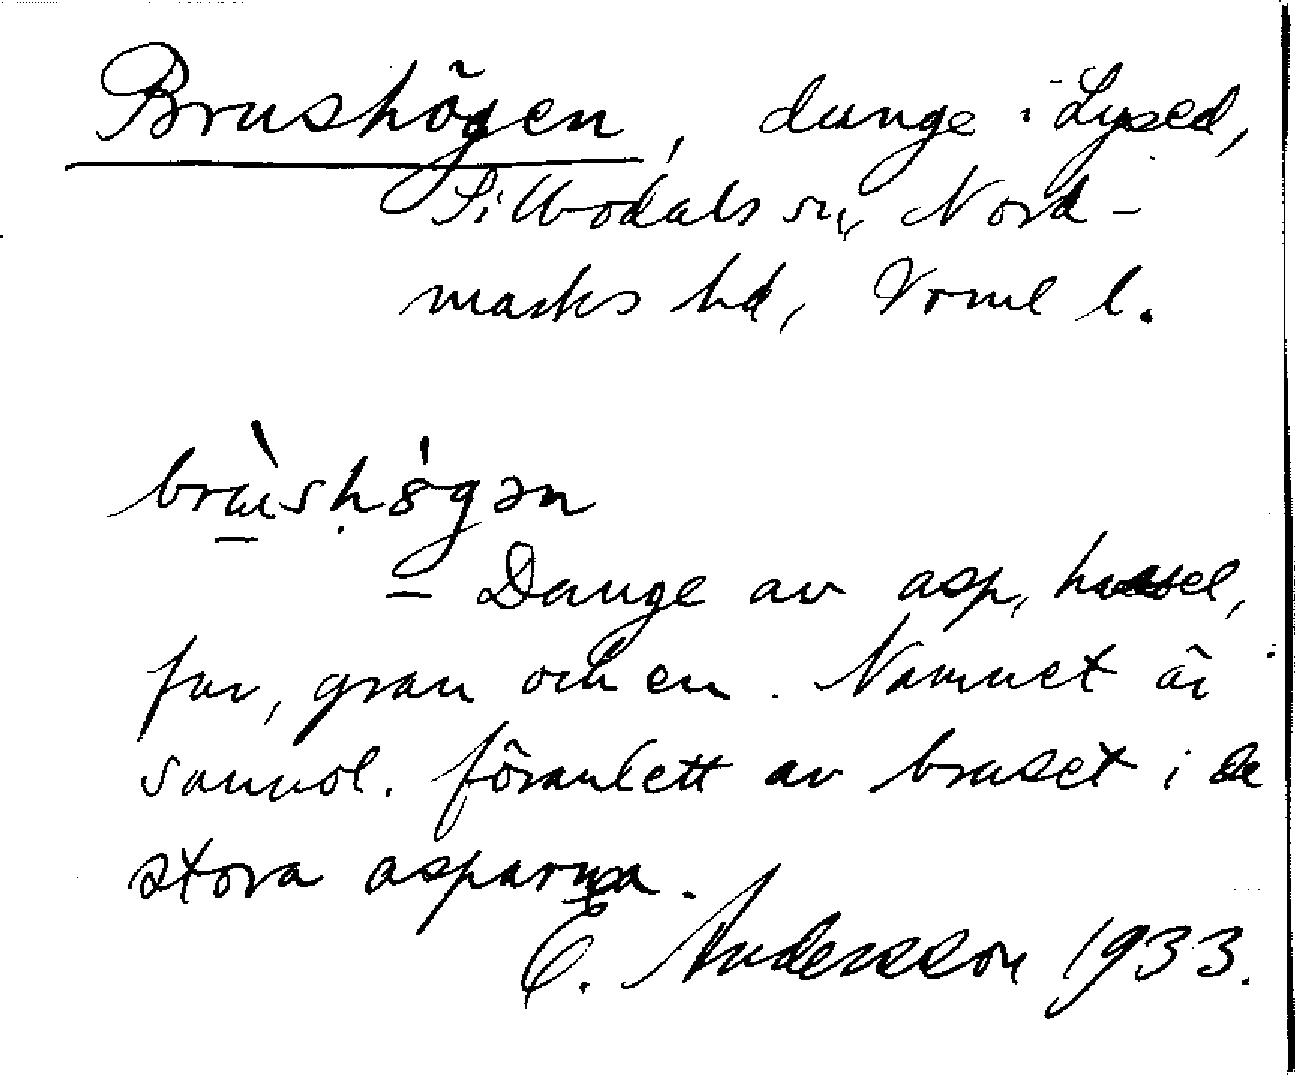 Brushögen, dunge i Lysed,
Silbodals sn, Nord-
marks hd, Vrml l.
brùshǿgən
— Dunge av asp, hassel,
fur, gran och en. Namnet är
sannol. föranlett av bruset i de
stora asparna.
E. Andersson 1933.